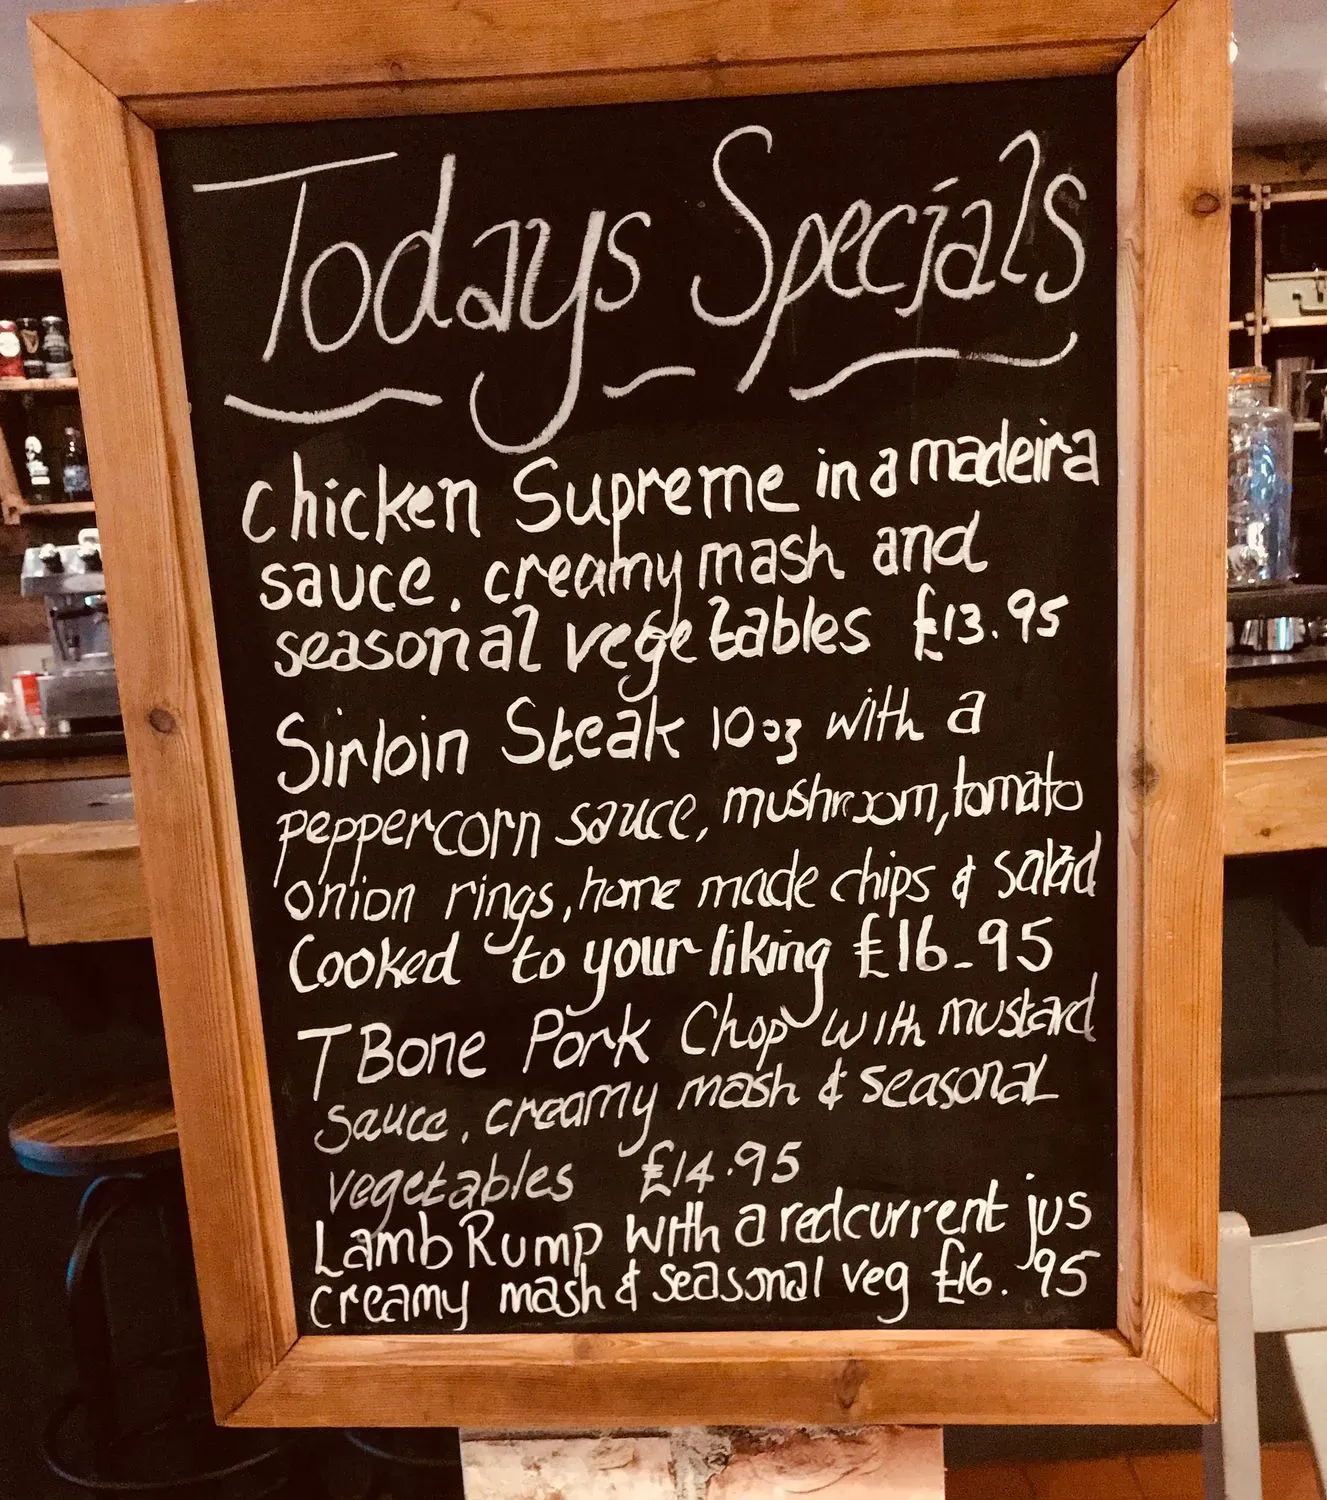 Todays Specials
Chicken Supreme in a madeira
sauce, creamy mash and
seasonal vegetables £13.95
Sirloin Steak 10oz with a
peppercorn sauce, mushroom, tomato
onion rings, home made chips & salad
Cooked to your liking £16-95
T Bone Pork Chop with mustard
sauce, creamy mash & seasonal
vegetables £14.95
Lamb Rump with a redcurrent jus
creamy mash & seasonal veg £16.95